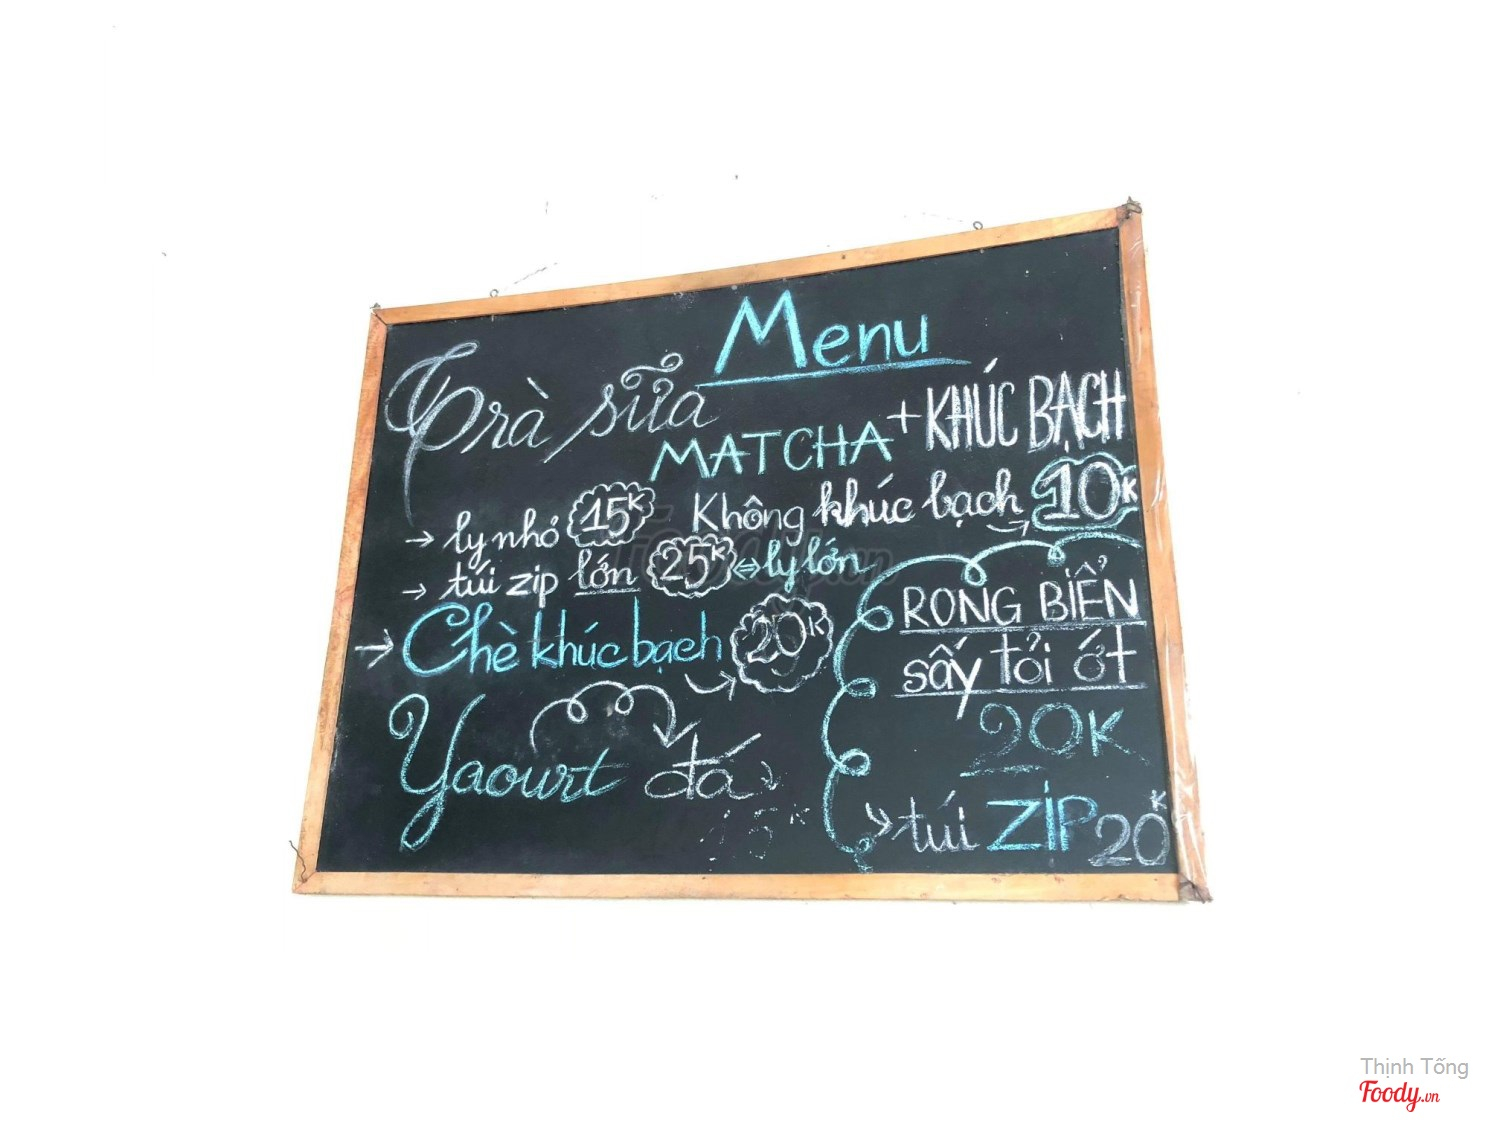 Menu
Trà sữa
MATCHA + KHÚC BẠCH
→ ly nhỏ 15K Không khúc bạch → 10K
→ túi zip lớn 25K ⇔ ly lớn
→ Chè khúc bạch → 20K
Yaourt đá
15K
RONG BIỂN
sấy tỏi ớt
20K
→ túi ZIP 20K
Foody.vn
Thịnh Tống
Foody.vn